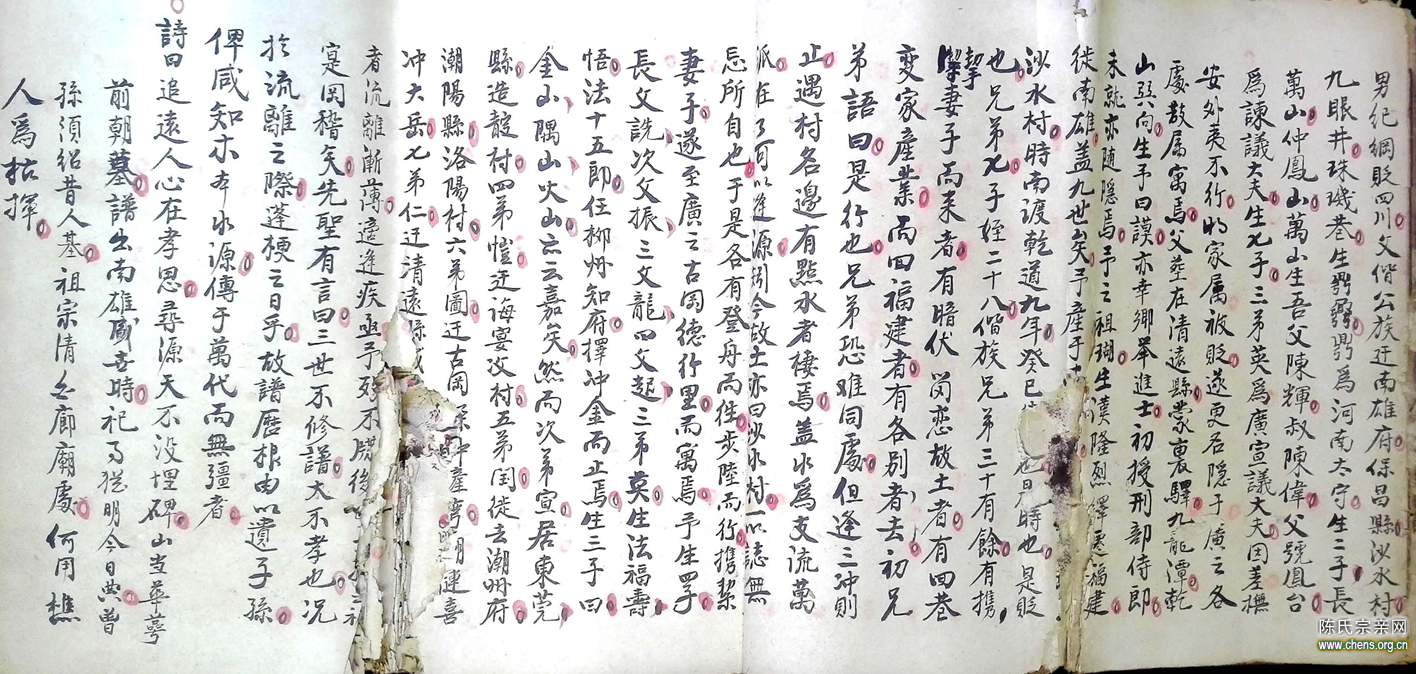 男紀綱貶四川父偕公族迁南雄府保昌縣沙水村
九眼井珠璣巷生為河南太守生二子長
萬山仲鳳山萬山生吾父陳輝叔陳偉父號鳳台
為諫議大夫生七子三弟英為廣宣議大夫因差撫
安外夷不行的家属被貶遂更名隠于廣之各
處散属寓焉父塟在清遠縣蒙裏驛九龍潭乾
山巽向生予曰謨亦幸鄉举進士初授刑部侍郎
未就亦随隠焉予之祖生謨隆烈繹遷福建
徙南雄盖九世矣予產于
沙水村時南渡乾道九年癸巳也是時也是貶
也兄弟七子姪二十八偕族兄弟三十有餘有携
挈妻子而来者有暗伏茵恋故土者有回巷
变家產業而回福建者有各别者去初兄
弟語曰是行也兄弟恐难同處但逢三冲則
止遇村名邊有點水者棲焉盖水為支流萬
派在了可以逢源闲今故土亦曰沙水村一以誌無
忘所自也于是各有登舟而徃步陸而行携挈
妻子遂至廣之古岡德行里而寓焉予生四子
長文詵次文振三文龍四文起三弟英生法福壽
悟法十五郎任柳州知府擇冲金而止焉生三子曰
金山隅山火山亦云嘉矣然而次弟宣居東莞
縣造靛村四弟愷迁海宴汶村五弟国徙去潮州府
潮陽縣洛陽村六弟圖迁古岡產穹月連喜
冲大岳七弟仁迁清遠縣
者流離漸薄遠逢疾亟予殁不牒後
寔罔稽矣先聖有言曰三世不修譜大不孝也况
於流離之際蓬梗之日乎故譜歷根由以遺子孫
俾咸知木本水源傳于萬代而無彊者
詩曰追遠人心在孝思尋源天不没埋碑山峑華萼
前朝墓譜出南雄盛喜時祀乌犹明今日典曾
孫須紹昔人基祖宗清么廊廟處何用樵
人為枯揮
陈氏宗亲网
www.chens.org.cn